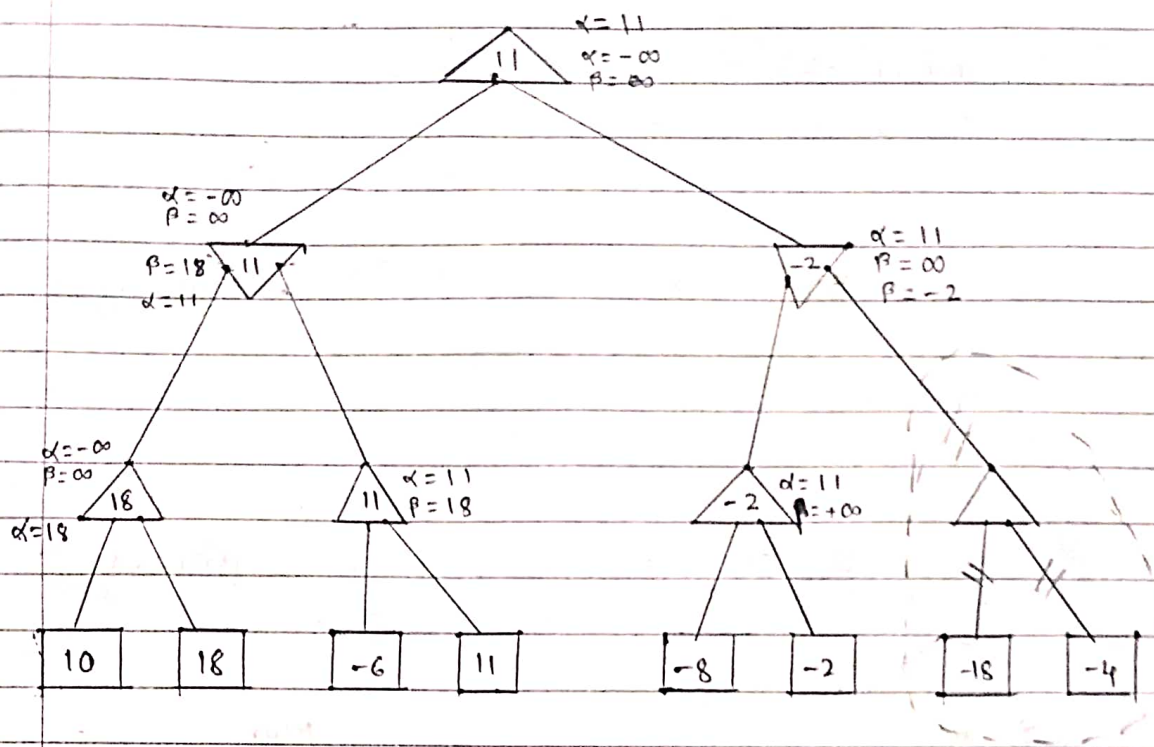 α = 11
11
α = -∞
β = ∞
α = -∞
β = ∞
β = 18
11
α = 11
-2
α = 11
β = ∞
β = -2
α = -∞
β = ∞
18
α = 18
11
α = 11
β = 18
-2
α = 11
β = +∞
10
18
-6
11
-8
-2
-18
-4